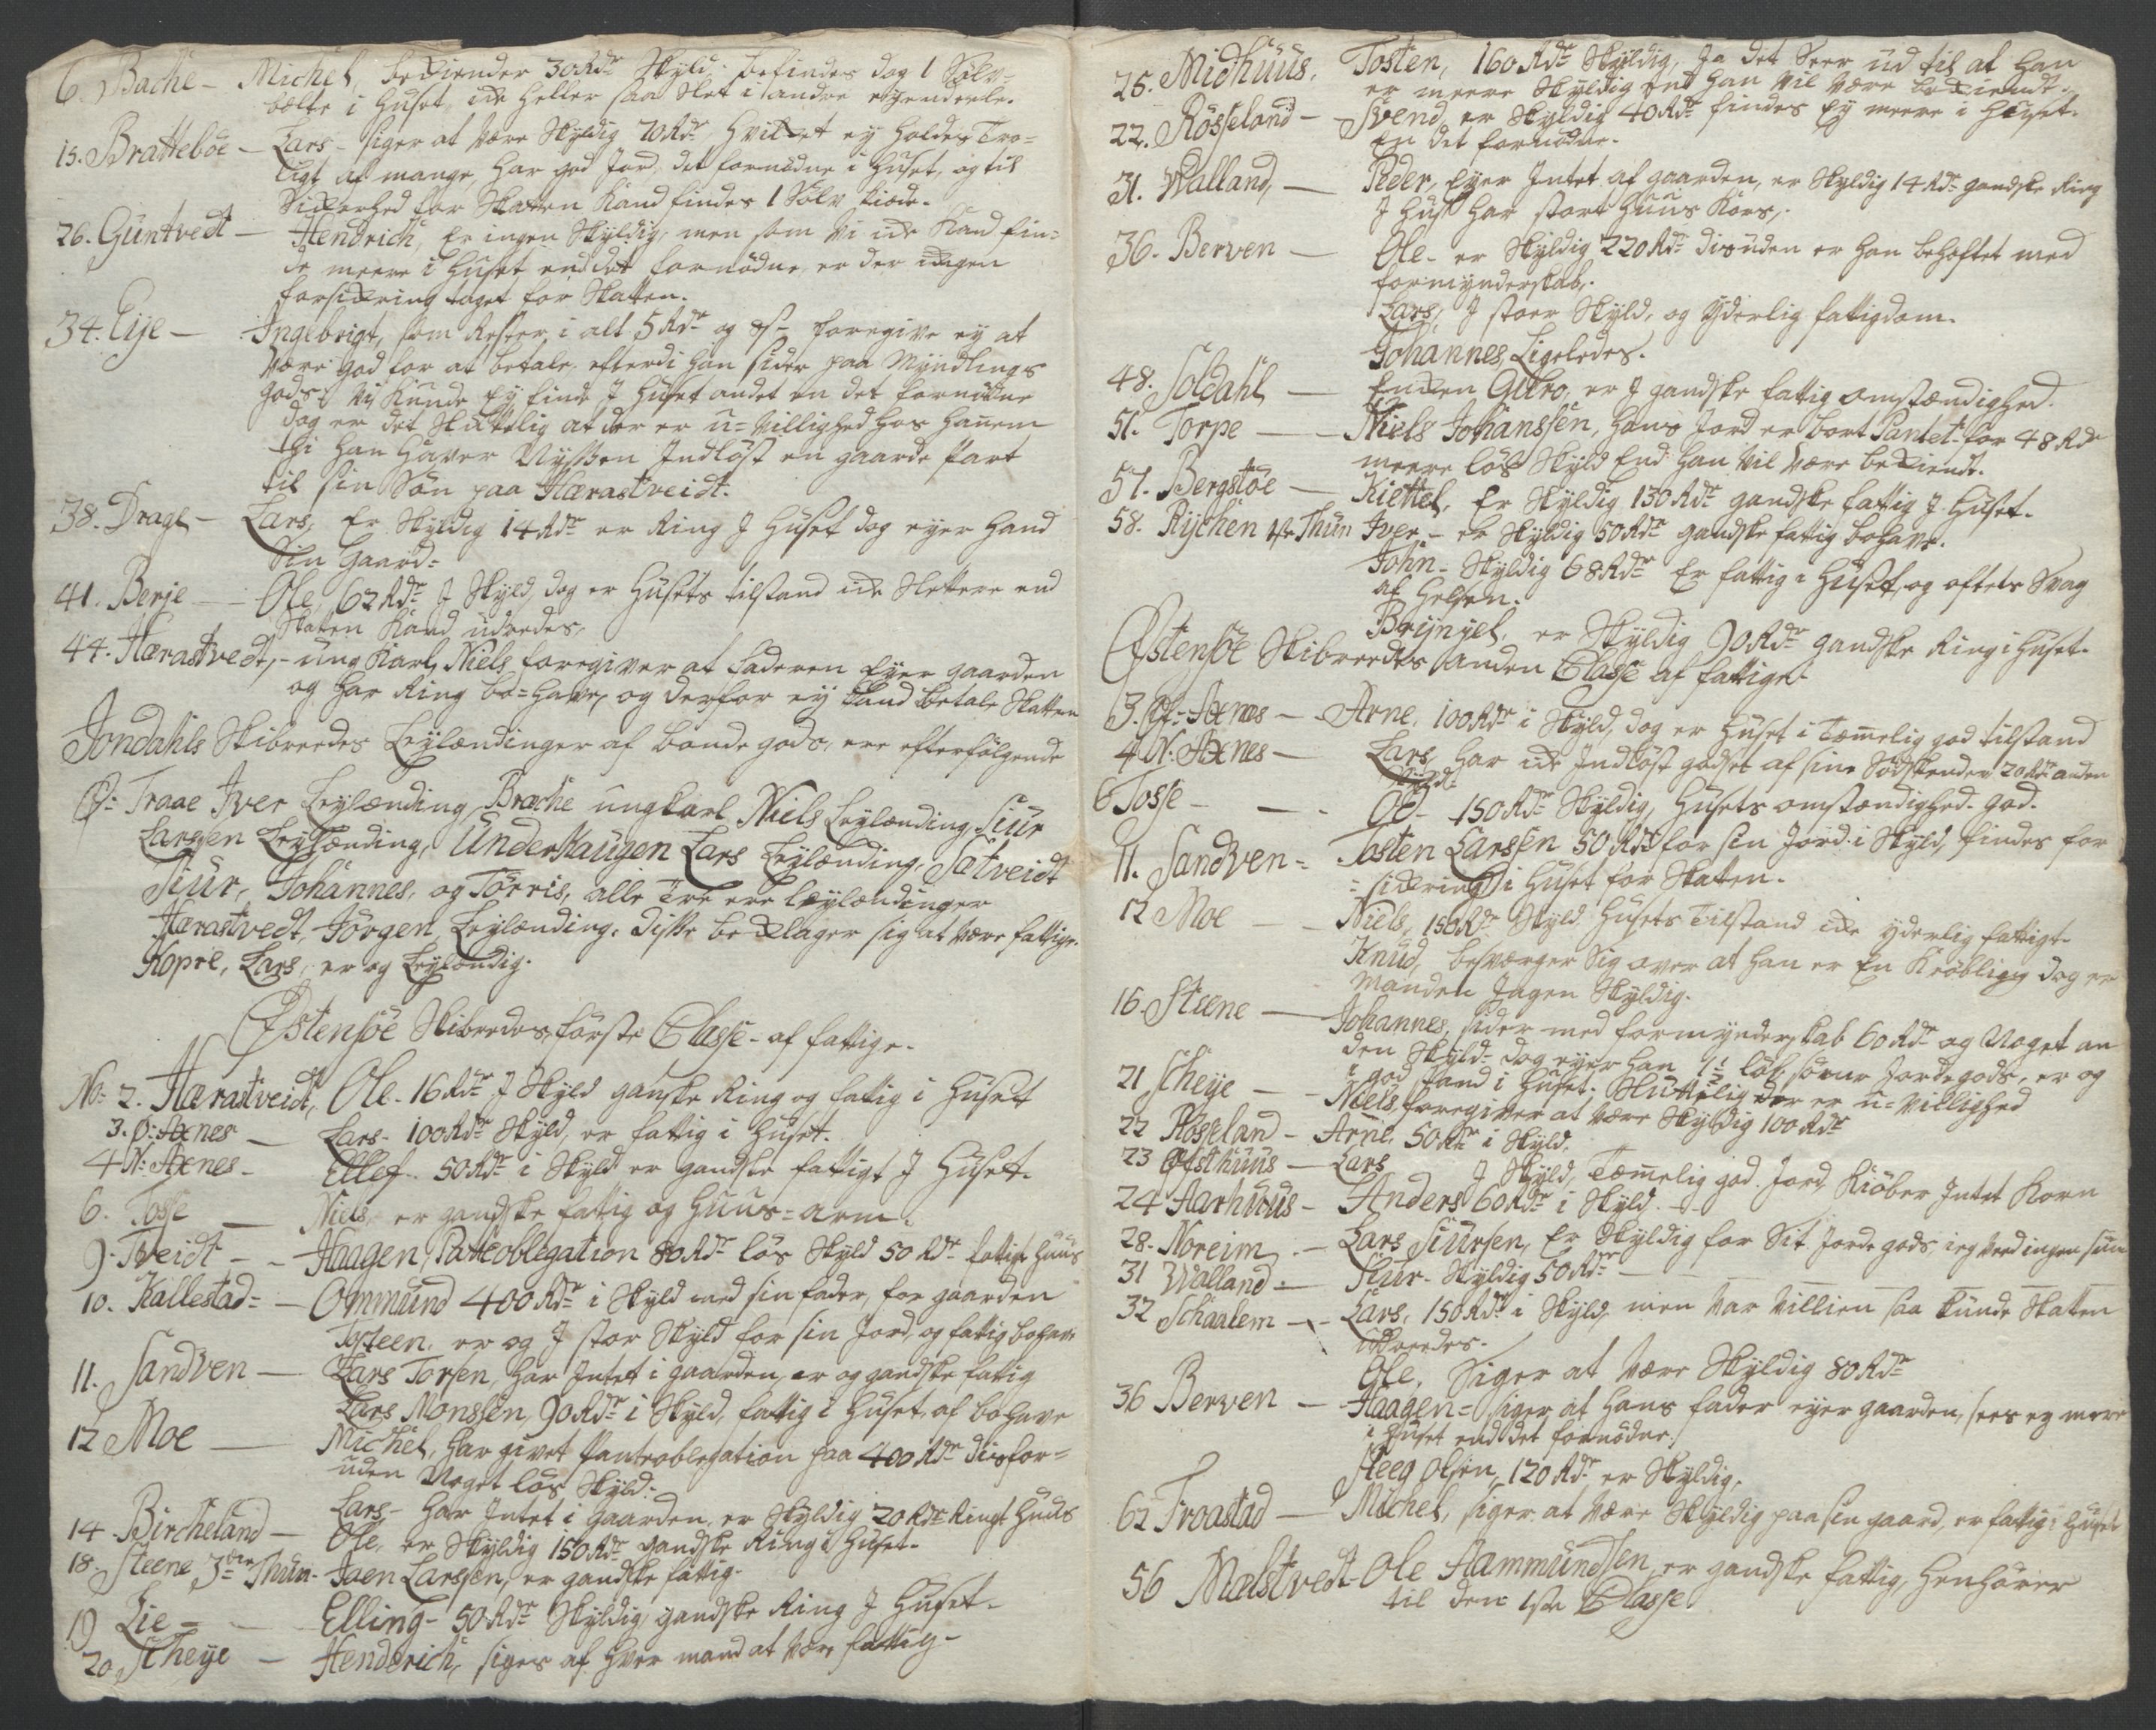 6. Bache - Michel, bekiender 30 Rdr Skyld, befindes dog 1 Sølv=
bælte i Huset, icke heller saa slet i andre eyendeele.
15. Bratteböe - Lars - siger at være Skyldig 70 Rdr hvilket ey holdes Tro=
ligt af mange, har god Jord, det fornødne i Huset, og til
Sickerhed for Skatten kand findes 1 Sølv Kiede.
26. Guntvedt - Hendrich, Er ingen Skyldig, men som Vi icke Kand fin=
de meere i Huset end det fornødne, er der ingen
forsickring taget for Skatten.
34. Eije - Ingebrigt, som Rester i alt 5 Rdr og foregive ey at
være god for at betale, efterdi han sider paa Myndlings
gods. Vi Kunde Ey finde I Huset andet en det fornødne
dog er det at der er u=villighed hos hannem
thi han haver Nyssen Indløst en gaarde Part
til sin Søn paa Hærastveidt.
38. Drage - Lars, Er Skyldig 14 Rdr er Ring I Huset dog eyer hand
Sin Gaard=
41. Berje - Ole, 62 Rdr I Skyld, dog er Husets tilstand icke Slettere end
Skatten Kand udredes,
44. Hærastvedt, - ung Karl Niels foregiver at faderen Eyer gaarden
og har Ring bo=have, og derfor ey kand betale Skatten
Jondahls Skibreedes Leylændinger af bonde gods, ere efterfølgende
Ø: Traae Iver Leylænding, Bræche ungkarl Niels Leylænding Siur
Larssen Leylænding, Underhaugen Lars Leylænding, Sætveidt
Siur, Johannes, og Törris, alle Tre ere leylændinger
Hærastvedt, Jörgen, Leylænding. Disse beklager sig at være fattige.
Kopre, Lars, er og Leylændig.
Østensöe Skibredes, første Classe - af fattige.
No: 2. Hærastveidt, Ole - 16 Rdr I Skyld ganske Ring og fattig i Huset
3. Ø: Axnes - Lars - 100 Rdr Skyld, er fattig i Huset.
4 N: Axnes - Ellef - 50 Rdr i Skyld er gandske fattigt I Huset.
6. Tosse - Niels, er gandske fattig og Huus=arm.
9. Tveidt - Haagen, Panteoblegation 80 Rdr løs Skyld 50 Rdr fattigt Huus
10. Kallestad= - Ommund 400 Rdr i Skyld med sin fader, for gaarden
Tosteen, er og I stor Skyld for sin Jord, og fattig bohave
11. Sandven - Lars Torsen, har Intet i gaarden, er og gandske fattig
Lars Monssen, 90 Rdr i Skyld, fattig i Huset, af bohave
12 Moe - Michel, har givet Panteoblegation paa 400 Rdr disfor=
uden Noget løs Skyld.
14. Bircheland - Lars - har Intet i Gaarden, er Skyldig 20 Rdr Ringt Huus
Ole, er Skyldig 150 Rdr gandske Ring i Huset.
18. Steene 3die Thun - Joen Larssen, er gandske fattig.
19 Lie - Elling - 50 Rdr Skyldig gandske Ring I Huset.
20 Scheye - Henderich, siges af hver mand at være fattig -
25. Midhuus, Tosten, 160 Rdr Skyldig, Ja det Seer ud til at han
er meere Skyldig end han vil være bekiendt.
22. Rösseland - Svend, er Skyldig 40 Rdr findes Ey meere i Huset.
en det fornødne.
31. Walland, - Peder, Eyer Intet af gaarden, er Skyldig 14 Rdr gandske Ring
I Huset har stort Huus Kors,
36. Berven - Ole - er Skyldig 220 Rdr disuden er han behæftet med
formynderskab,
Lars, I stoer Skyld, og yderlig fattigdom.
Johannes Ligeledes.
48. Soldahl - Encken Guro, er I gandske fattig omstændighed.
51. Torpe - Niels Johanssen, hans Jord er bort Pantet for 48 Rdr
meere løs Skyld End han vil være bekiendt.
57. Bergstöe - Kiettel, Er Skyldig 130 Rdr gandske fattig I Huset.
58. Rychen Thun Iver, - er Skyldig 50 Rdr gandske fattig bohave.
John - Skyldig 68 Rdr Er fattig i Huset, og oftets Svag
af Helsen.
Brynyel, er Skyldig 90 Rdr gandske Ring i Huset.
Østensöe Skibreedes anden Classe af fattige.
3. Ø: Axnes - Arne, 100 Rdr i Skyld, dog er Huset i Tæmmelig god tilstand
4 N: Axnes - Lars, har icke Indløst godset af sine Sødskender 20 Rdr anden
Skyld.
6 Tosse - Ole - 150 Rdr Skyldig, Husets omstændighed god.
11. Sandven - Tosten Larssen 50 Rdr for sin Jord i Skyld, findes for
=sickring i Huset for Skatten.
12 Moe - Niels, 150 Rdr Skyld Husets Tilstand icke yderlig fattigt.
Knud, besværger Sig over at han er En Krøbling dog er
manden Ingen Skyldig.
16. Steene - Johannes, sider med formynderskab 60 Rdr og Noget an
den Skyld - dog eyer han 1½ løb, Jordegods, er og
i god stand i Huset. der er u=villighed
21 Scheye - Niels, foregiver at være Skyldig 100 Rdr
22 Rösseland - Arne, 50 Rdr i Skyld,
23 Ofsthuus - Lars I Skyld, Tæmmelig god Jord, Kiøber Intet Korn
24 Aarhuus - Anders 60 Rdr i Skyld.
28. Noreim - Lars Siursen, Er Skyldig for Sit Jorde gods, ieg veed ingen
31 Walland - Siur - Skyldig 50 Rdr
32 Schaalem - Lars, 150 Rdr i Skyld, men var villien saa kunde Skatten
udreedes.
Ole, Siger at være Skyldig 80 Rdr
36 Berven - Haagen= siger at hans fader eyer gaarden, sees ey mere
i Huset end det fornødne.
Steeg Olsen, 120 Rdr er Skyldig,
62 Troastad - Michel, siger at være Skyldig paa sin gaard, er fattig i Huset
56 Mælstvedt - Ole Aammundsen, er gandske fattig, Henhører
til den 1ste Classe